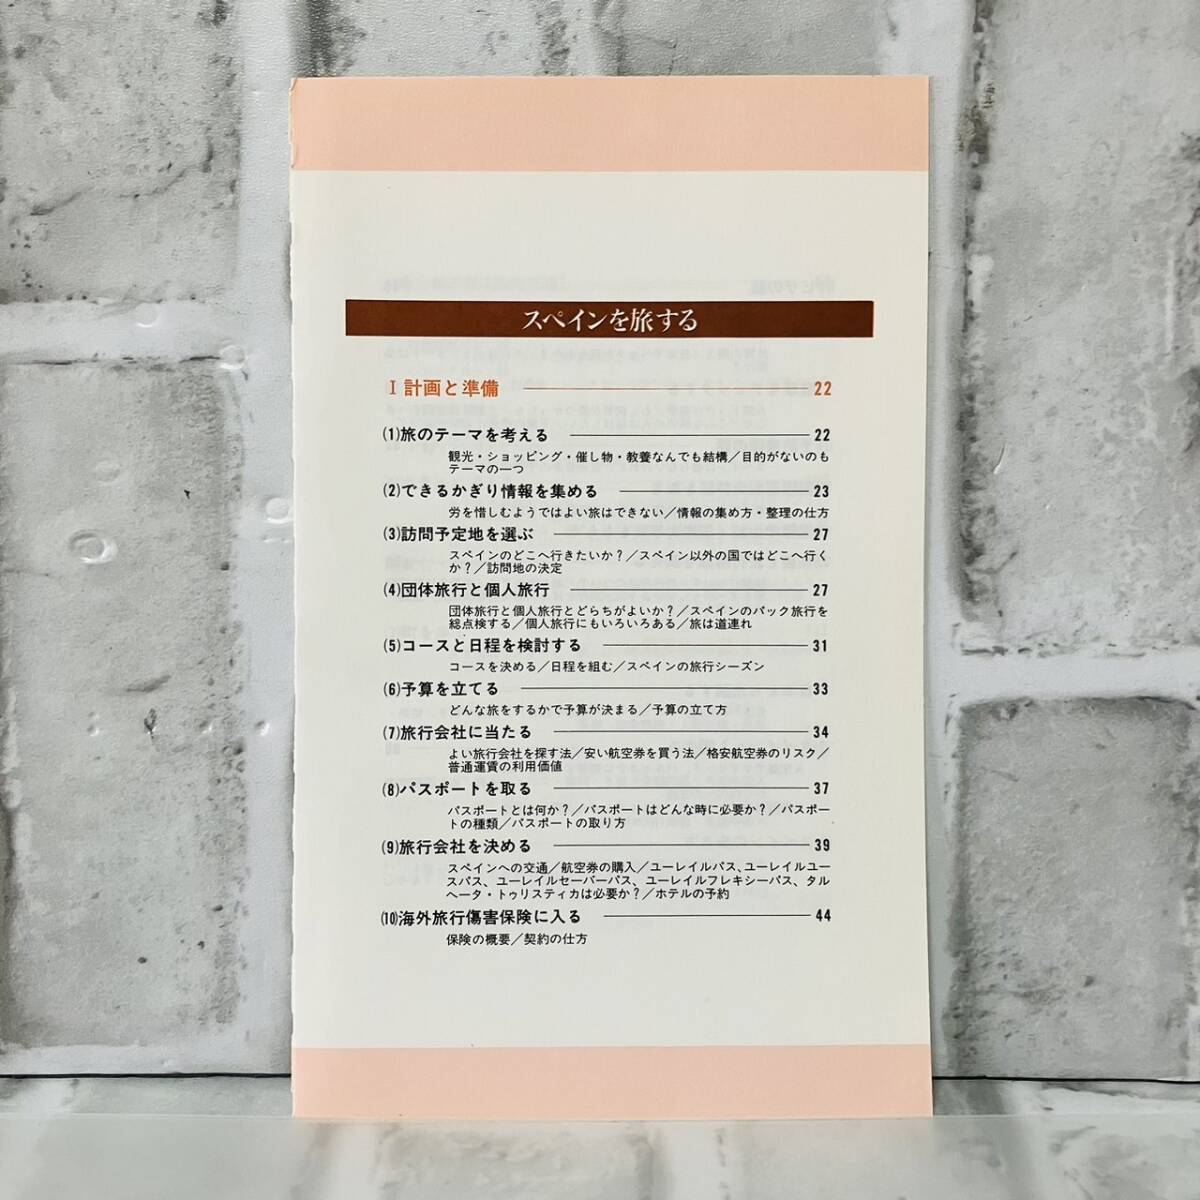 スペインを旅する
I 計画と準備 22
(1)旅のテーマを考える 22
観光・ショッピング・催し物・教養なんでも結構／目的がないのも
テーマの一つ
(2)できるかぎり情報を集める 23
労を惜しむようではよい旅はできない／情報の集め方・整理の仕方
(3)訪問予定地を選ぶ 27
スペインのどこへ行きたいか？／スペイン以外の国ではどこへ行く
か？／訪問地の決定
(4)団体旅行と個人旅行 27
団体旅行と個人旅行とどらちがよいか？／スペインのパック旅行を
総点検する／個人旅行にもいろいろある／旅は道連れ
(5)コースと日程を検討する 31
コースを決める／日程を組む／スペインの旅行シーズン
(6)予算を立てる 33
どんな旅をするかで予算が決まる／予算の立て方
(7)旅行会社に当たる 34
よい旅行会社を探す法／安い航空券を買う法／格安航空券のリスク／
普通運賃の利用価値
(8)パスポートを取る 37
パスポートとは何か？／パスポートはどんな時に必要か？／パスポー
トの種類／パスポートの取り方
(9)旅行会社を決める 39
スペインへの交通／航空券の購入／ユーレイルパス、ユーレイルユー
スパス、ユーレイルセーバーパス、ユーレイルフレキシーパス、タル
ヘータ・トゥリスティカは必要か？／ホテルの予約
(10)海外旅行傷害保険に入る 44
保険の概要／契約の仕方